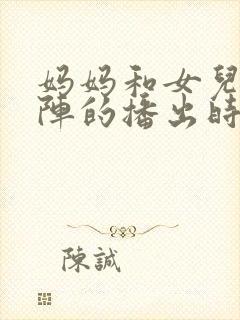 妈妈和女兒
陣的播出時
陳誠